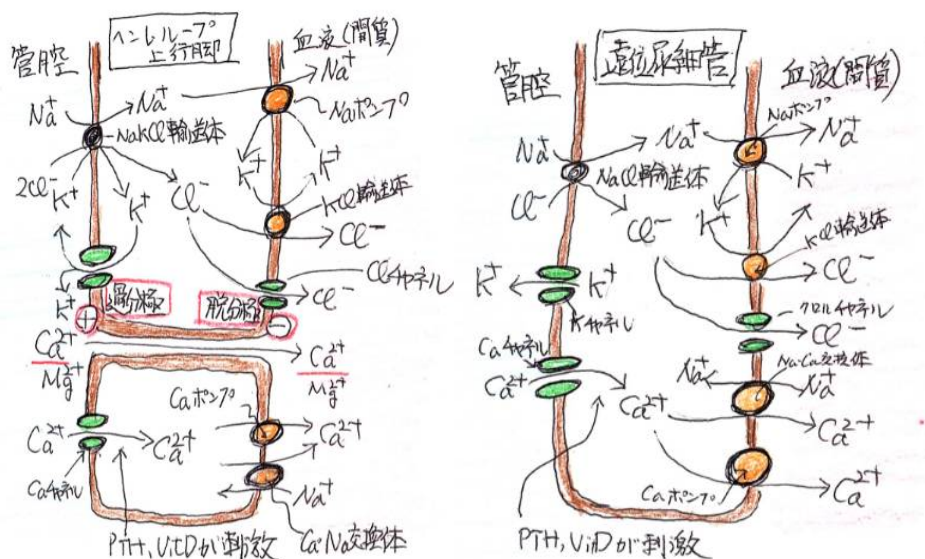 ヘンレループ
上行脚
管腔
血液(間質)
Na⁺
Na⁺
Na⁺
Naポンプ
NaKCl輸送体
2Cl⁻
K⁺
K⁺
Cl⁻
K⁺
K⁺
KCl輸送体
Cl⁻
Clチャネル
Cl⁻
K⁺
過分極
脱分極
+
−
Ca²⁺
Mg²⁺
Ca²⁺
Mg²⁺
Caポンプ
Ca²⁺
Ca²⁺
Ca²⁺
Caチャネル
Na⁺
PTH, VitDが刺激
Ca・Na交換体
遠位尿細管
管腔
血液(間質)
Naポンプ
Na⁺
Na⁺
Na⁺
NaCl輸送体
Cl⁻
Cl⁻
K⁺
K⁺
KCl輸送体
Cl⁻
K⁺
K⁺
Kチャネル
クロルチャネル
Cl⁻
Caチャネル
Na・Ca交換体
Na⁺
Na⁺
Ca²⁺
Ca²⁺
Ca²⁺
Caポンプ
Ca²⁺
PTH, VitDが刺激